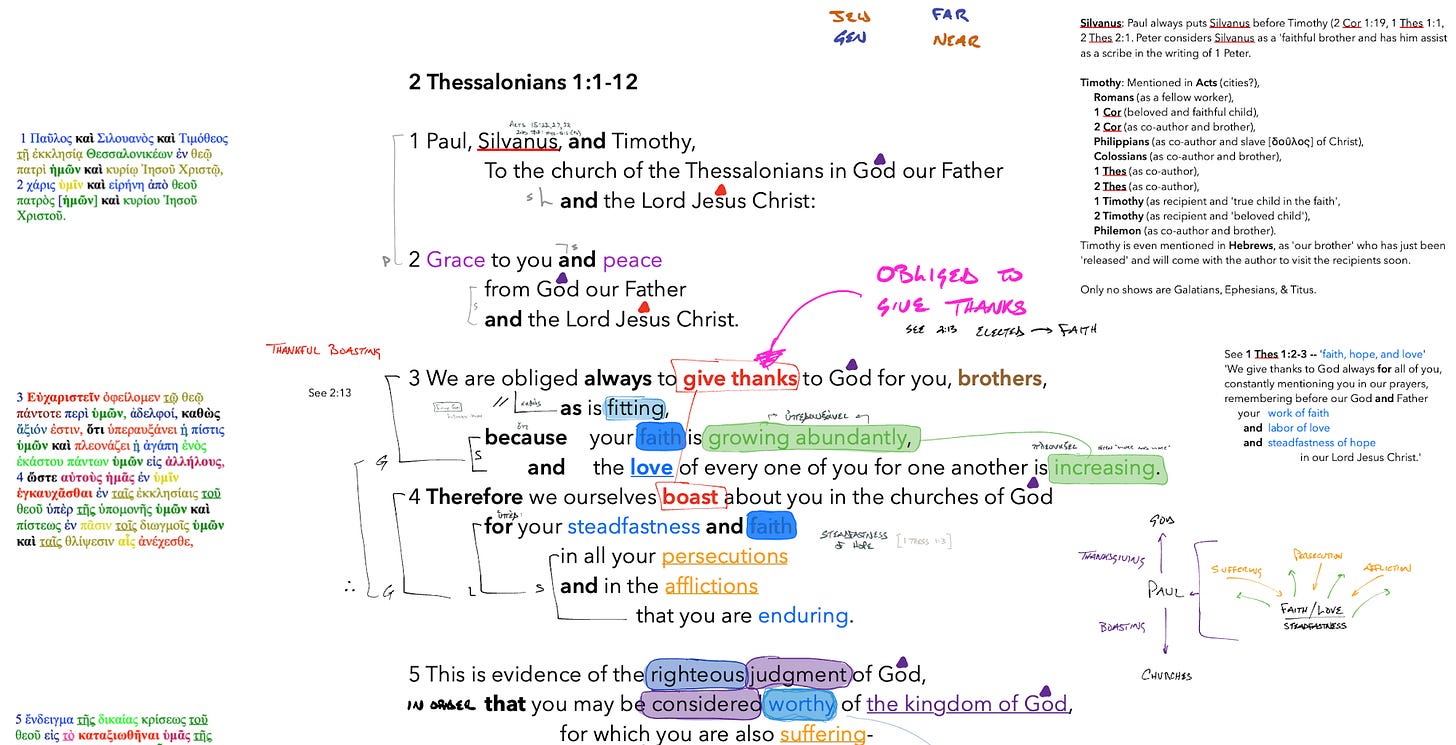 JEW FAR
GEN NEAR
Silvanus: Paul always puts Silvanus before Timothy (2 Cor 1:19, 1 Thes 1:1,
2 Thes 2:1. Peter considers Silvanus as a 'faithful brother and has him assist
as a scribe in the writing of 1 Peter.
Timothy: Mentioned in Acts (cities?),
Romans (as a fellow worker),
1 Cor (beloved and faithful child),
2 Cor (as co-author and brother),
Philippians (as co-author and slave [δοῦλος] of Christ),
Colossians (as co-author and brother),
1 Thes (as co-author),
2 Thes (as co-author),
1 Timothy (as recipient and 'true child in the faith',
2 Timothy (as recipient and 'beloved child'),
Philemon (as co-author and brother).
Timothy is even mentioned in Hebrews, as 'our brother' who has just been
'released' and will come with the author to visit the recipients soon.
Only no shows are Galatians, Ephesians, & Titus.
2 Thessalonians 1:1-12
1 Παῦλος καὶ Σιλουανὸς καὶ Τιμόθεος
τῇ ἐκκλησίᾳ Θεσσαλονικέων ἐν θεῷ
πατρὶ ἡμῶν καὶ κυρίῳ Ἰησοῦ Χριστῷ,
2 χάρις ὑμῖν καὶ εἰρήνη ἀπὸ θεοῦ
πατρὸς [ἡμῶν] καὶ κυρίου Ἰησοῦ
Χριστοῦ.
1 Paul, Silvanus, and Timothy,
To the church of the Thessalonians in God our Father
and the Lord Jesus Christ:
2 Grace to you and peace
from God our Father
and the Lord Jesus Christ.
P
S
S
OBLIGED TO
GIVE THANKS
SEE 2:13 ELECTED → FAITH
THANKFUL BOASTING
See 2:13
3 We are obliged always to give thanks to God for you, brothers,
as is fitting,
because your faith is growing abundantly,
and the love of every one of you for one another is increasing.
4 Therefore we ourselves boast about you in the churches of God
for your steadfastness and faith
in all your persecutions
and in the afflictions
that you are enduring.
S
G
∴ G L S
STEADFASTNESS
OF HOPE [1 THESS 1:3]
See 1 Thes 1:2-3 -- 'faith, hope, and love'
'We give thanks to God always for all of you,
constantly mentioning you in our prayers,
remembering before our God and Father
your work of faith
and labor of love
and steadfastness of hope
in our Lord Jesus Christ.'
3 Εὐχαριστεῖν ὀφείλομεν τῷ θεῷ
πάντοτε περὶ ὑμῶν, ἀδελφοί, καθὼς
ἄξιόν ἐστιν, ὅτι ὑπεραυξάνει ἡ πίστις
ὑμῶν καὶ πλεονάζει ἡ ἀγάπη ἑνὸς
ἑκάστου πάντων ὑμῶν εἰς ἀλλήλους,
4 ὥστε αὐτοὺς ἡμᾶς ἐν ὑμῖν
ἐγκαυχᾶσθαι ἐν ταῖς ἐκκλησίαις τοῦ
θεοῦ ὑπὲρ τῆς ὑπομονῆς ὑμῶν καὶ
πίστεως ἐν πᾶσιν τοῖς διωγμοῖς ὑμῶν
καὶ ταῖς θλίψεσιν αἷς ἀνέχεσθε,
GOD
THANKSGIVING
PAUL
BOASTING
CHURCHES
SUFFERING PERSECUTION AFFLICTION
FAITH/LOVE
STEADFASTNESS
5 This is evidence of the righteous judgment of God,
IN ORDER that you may be considered worthy of the kingdom of God,
for which you are also suffering-
5 ἔνδειγμα τῆς δικαίας κρίσεως τοῦ
θεοῦ εἰς τὸ καταξιωθῆναι ὑμᾶς τῆς